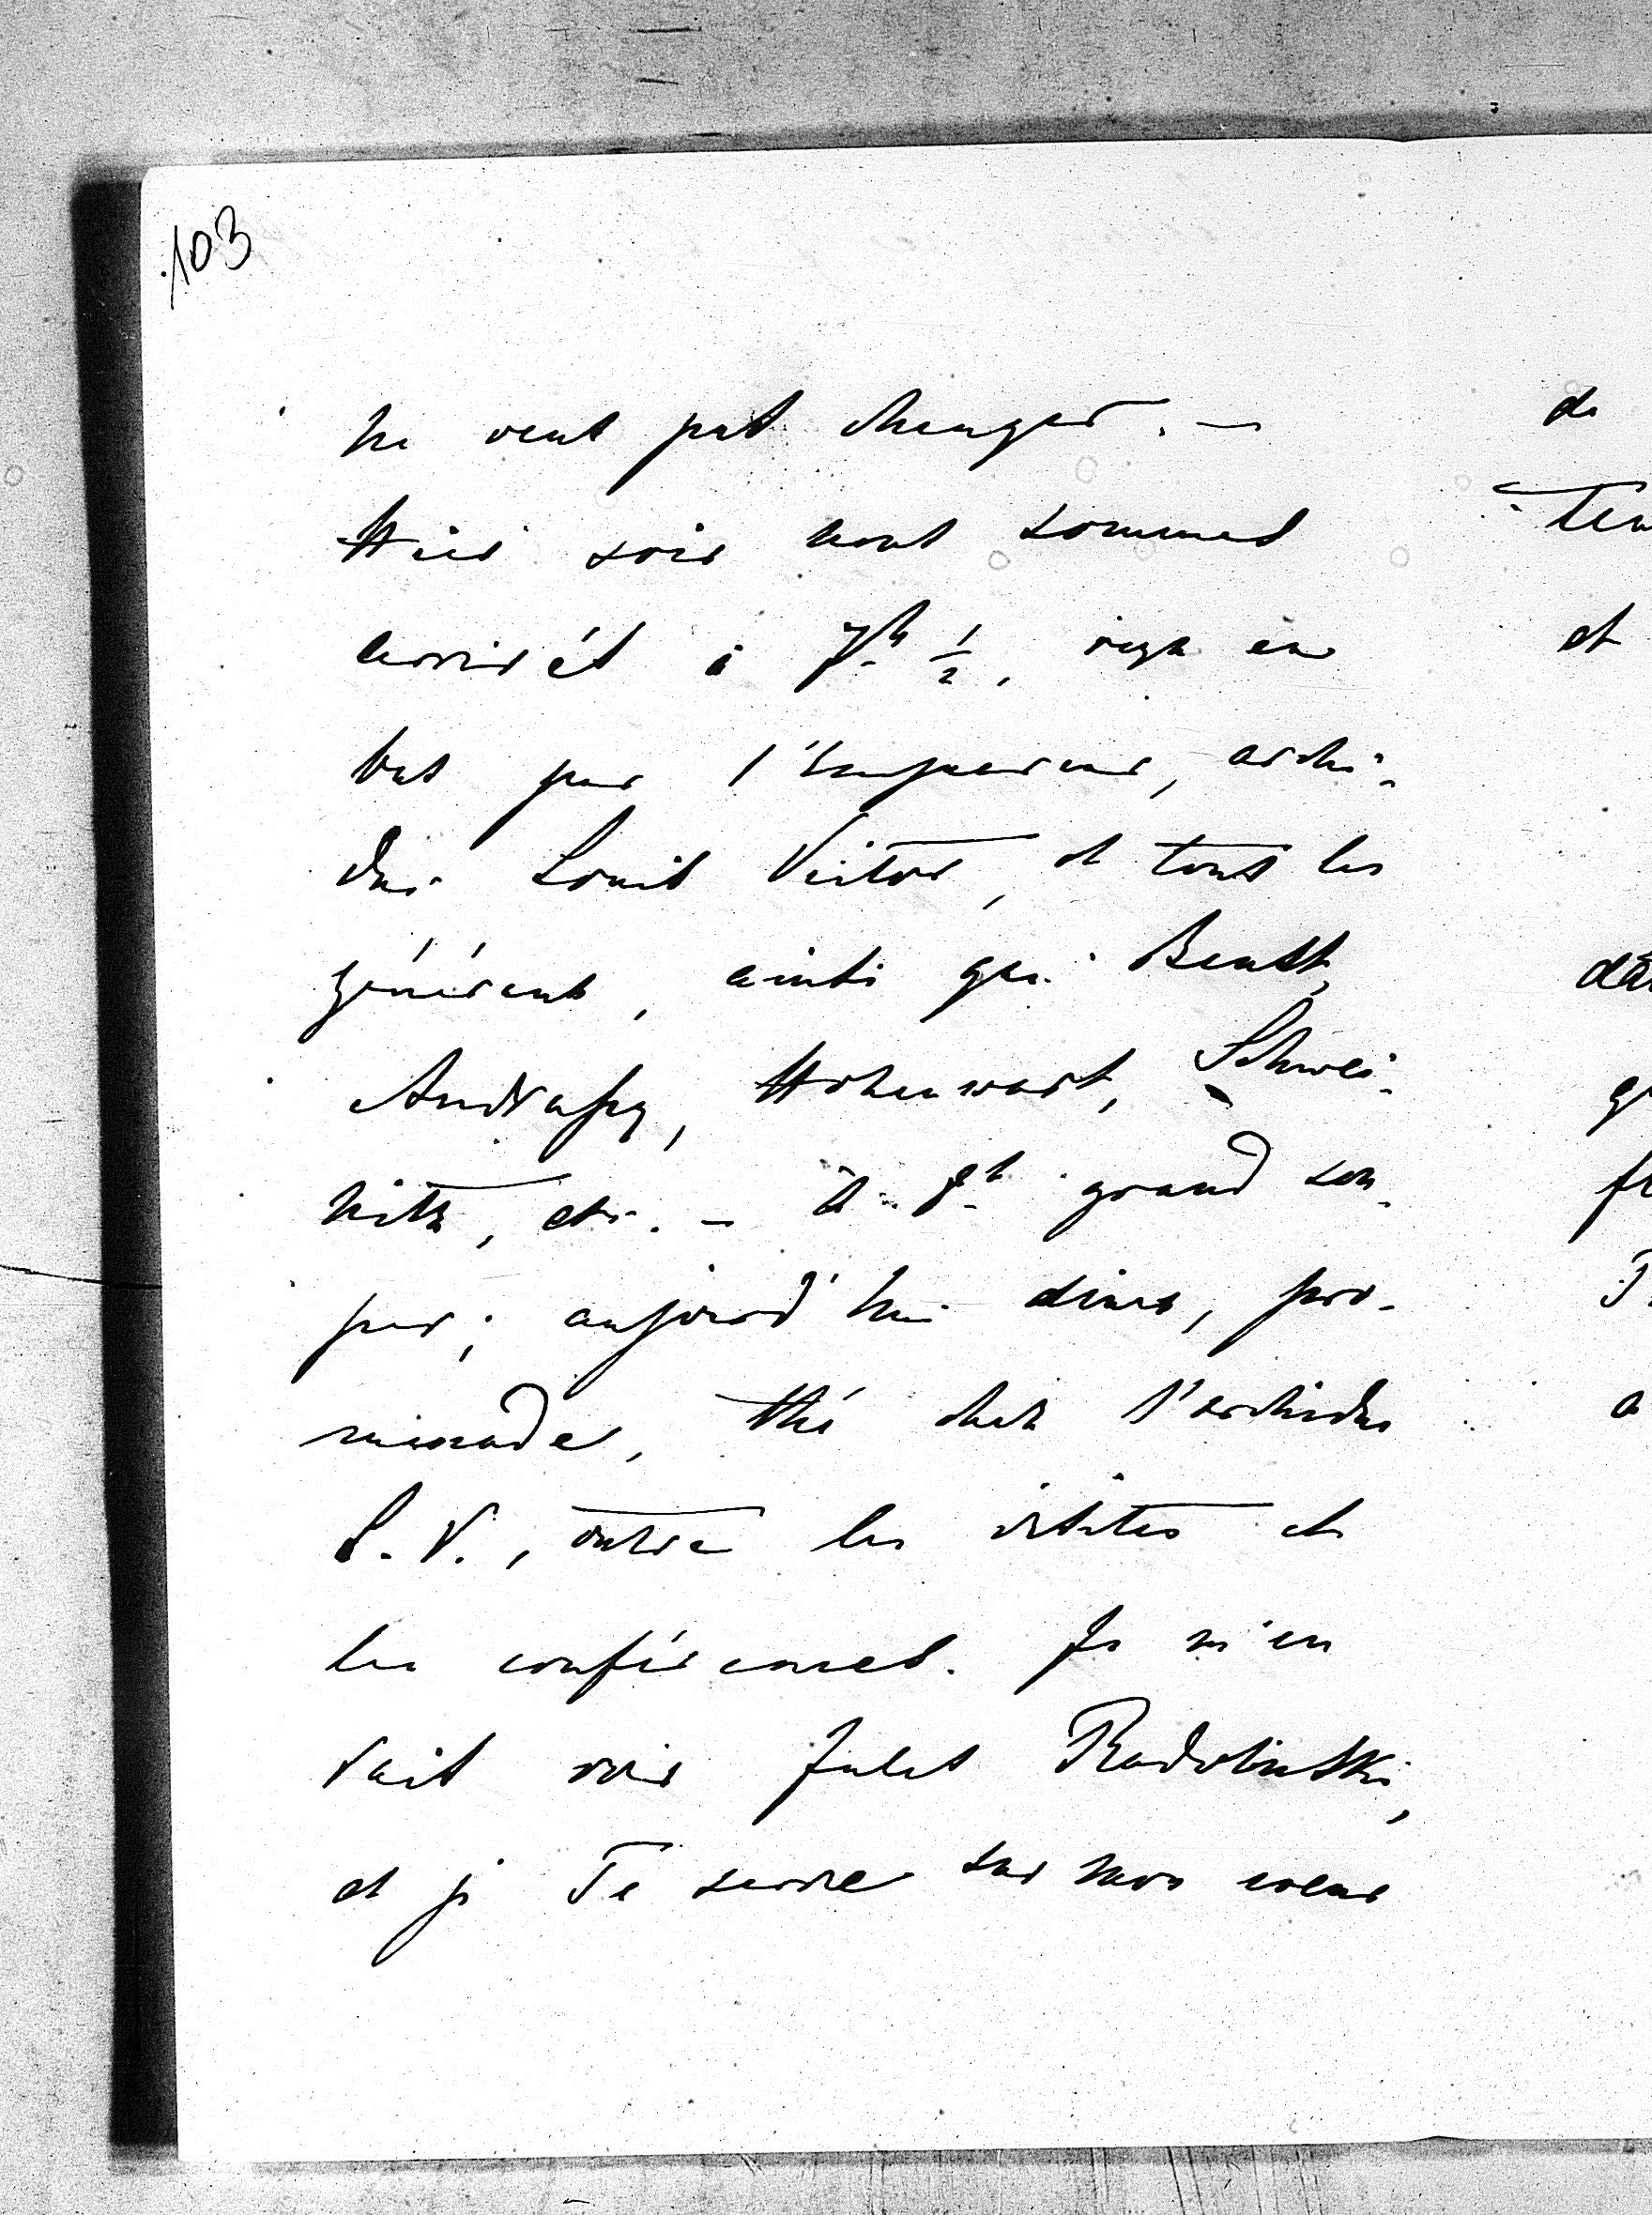 103
ne veut pas changer. —
Hier soir nous sommes
arrivés à 7h 1/2, reçu en
bas par l'Empereur, archi-
duc Louis Victor, et tous les
généraux, ainsi que Beust,
Andrassy, Hohenwart, Schwei-
nitz, etc. — à 8h grand sou-
per; aujourd'hui diner, pro-
menade, thé chez l'archiduc
L. V., outre les visites et
les conférences. Je m'en
vais voir Jules Radolinski,
et je Te serre sur mon coeur
de
et